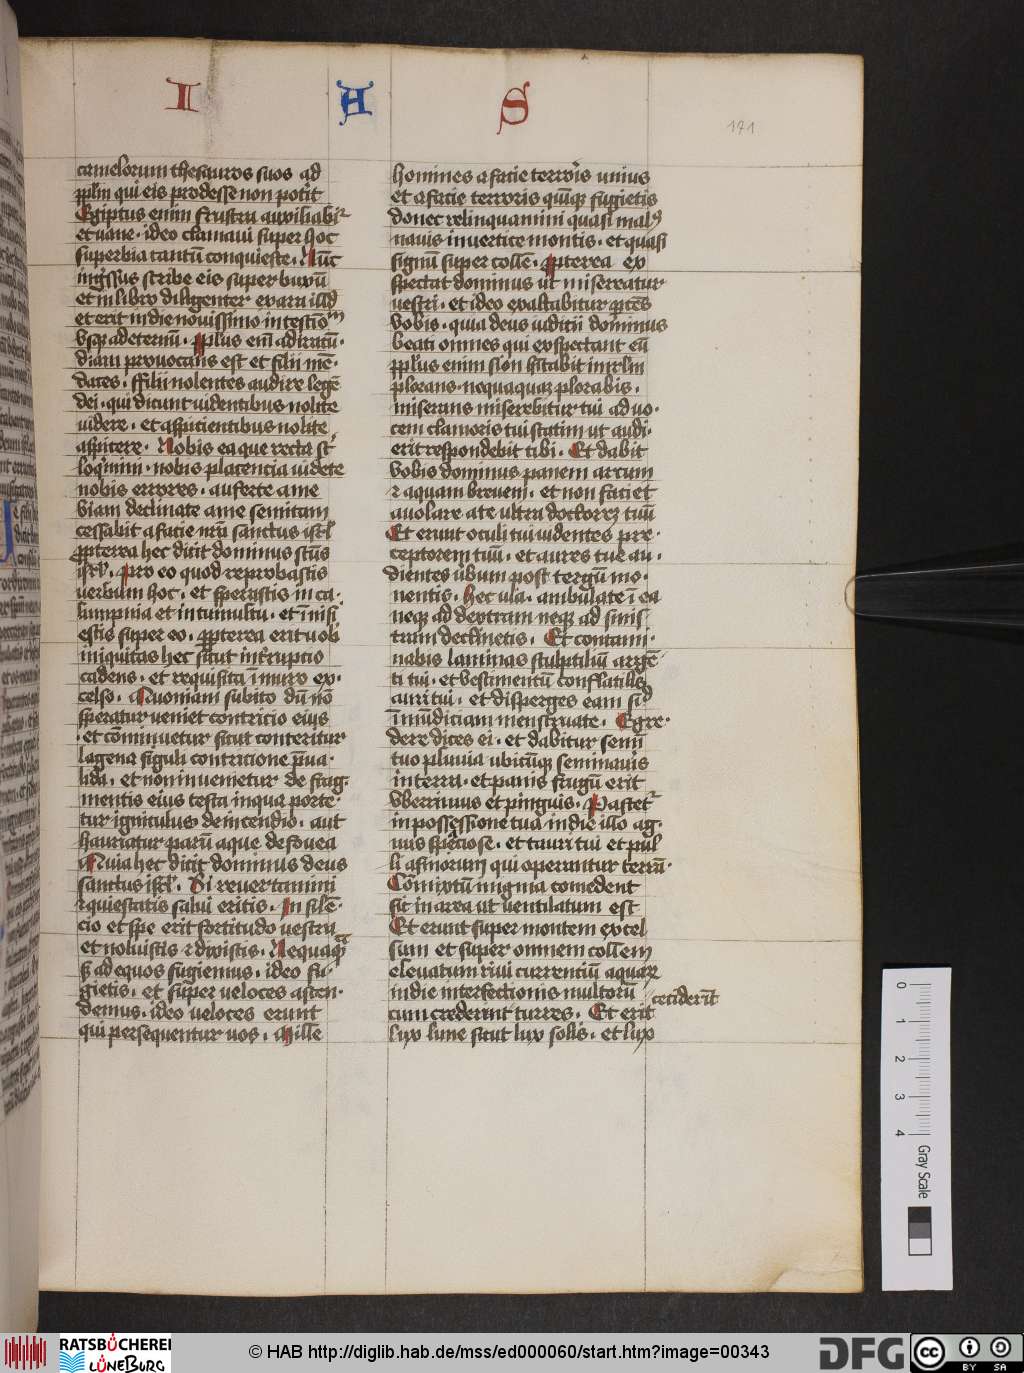 I H S
171
camelorum thesauros suos ad
pplm qui eis prodesse non potit
Egiptus enim frustra auxiliabir
et vane · ideo clamavi super hoc
superbia tantū conquiesce · Nūc
ingssus scribe eis super buxū
et in libro diligenter exara illd
et erit in die novissimo in testiōm
vsq adeternū · pplus eni adiracū·
diam provocans est et filii mē·
daces · ffilii nolentes audire legē
dei · qui dicunt videntibus nolite
videre · et aspicientibus nolite
aspicere · Nobis ea que recta st
loqmini · nobis placencia videte
nobis errores · auferte a me
viam declinate a me semitam
cessabit a facie nrā sanctus isrl
ppterea hec dicit dominus scūs
isrl · Pro eo quod reprobastis
verbum hoc · et sperastis in ca·
lumpnia et in tumultu · et īnisi
estis super eo · ppterea erit vob
iniquitas hec sicut intruptio
cadens · et requisita ī muro ex·
celso · Quoniam subito dū nō
speratur veniet contricio eius
· et cōminuetur sicut conteritur
lagena figuli contricione pva·
lida · et non invenietur de frag·
mentis eius testa in qua porte·
tur igniculus de incendio · aut
hauriatur parū aque de fovea
Quia hec dicit dominus deus
sanctus isrl · Si revertamini
et quiescatis salui eritis · In silē·
cio et spe erit fortitudo vestra
et noluistis et dixistis · Nequaqm
sz ad equos fugiemus · ideo fu·
gietis · et super veloces ascen·
demus · ideo veloces erunt
qui persequentur vos · Mille
homines a facie terroris unius
et a facie terroris quīq fugietis
donec relinquamini quasi mal9
navis in vertice montis · et quasi
signū super collē · ppterea ex
spectat dominus ut misereatur
vestri · et ideo exaltabitur pcēs
vobis · quia deus iudicii dominus
beati omnes qui exspectant eū
pplus enim sion hītabit in irlm
plorans · nequaquaz plorabis ·
miserans miserebitur tui ad vo·
cem clamoris tui statim ut audi·
erit respondebit tibi · Et dabit
vobis dominus panem arcum
et aquam brevem · et non faciet
avolare a te ultra doctorez tuū
Et erunt oculi tui videntes pre·
ceptorem tuū · et aures tue au·
dientes vbum post tergū mo·
nentis · hec via · ambulate ī ea
neqz ad dextram neqz ad sinis
tram declinetis · Et contami·
nabis laminas sculptiliū argē
ti tui · et vestimentū conflatilis
auri tui · et disperges eam sic
īmūdiciam menstruate · Egre·
dere dices ei · et dabitur semī
tuo pluvia ubicūqz seminavis
in terra · et panis frugū erit
vberrimus et pinguis · Pascetr
in possessione tua in die illo ag·
nus spaciose · et tauri tui et pul
li asinorum qui operantur terrā·
Cōmixtū migma comedent
sic in area ut ventilatum est
Et erunt super montem excel
sum et super omnem collem
elevatum rivi currentiū aquarz
in die interfectionis multorū
cum crederint turres · Et erit
ceciderīt
lux lune sicut lux solis · et lux
0
1
2
3
4
Gray Scale
RATSBÜCHEREI
LÜNEBURG
© HAB http://diglib.hab.de/mss/ed000060/start.htm?image=00343
DFG
cc
BY SA